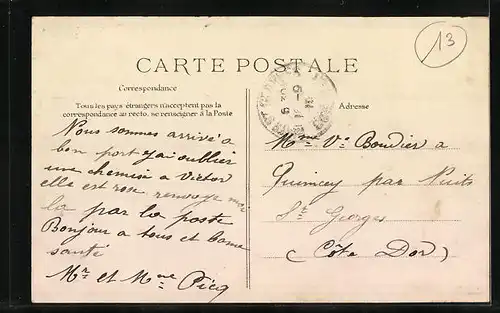 13
CARTE POSTALE
Correspondance
Tous les pays étrangers n'acceptent pas la
correspondance au recto, se renseigner à la Poste
Adresse
Nous sommes arrivé a
bon port j'ai oublier
une chemise a Victor
elle est rose renvoye moi
la par la poste
Bonjour a tous et bonne
santé
Mr et Mme Picq
Mme Ve Boudier a
Quincey par Nuits
St Georges
(Côte Dor)